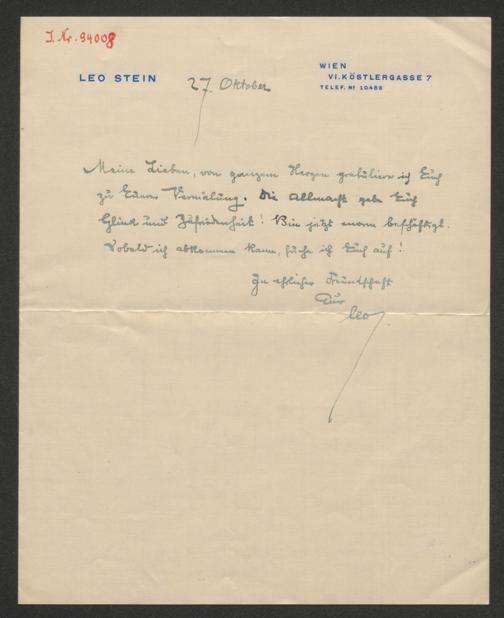 I. Nr. 94008
LEO STEIN
27. Oktober
WIEN
VI. KÖSTLERGASSE 7
TELEF. Nº 10483
Meine Lieben, von ganzem Herzen gratuliere ich Euch
zu Eurer Vermälung. Die Allmacht gebe Euch
Glück und Zufriedenheit! Bin jetzt enorm beschäftigt.
Sobald ich abkommen kann, suche ich Euch auf!
In ehrlicher Freundschaft
Euer
Leo